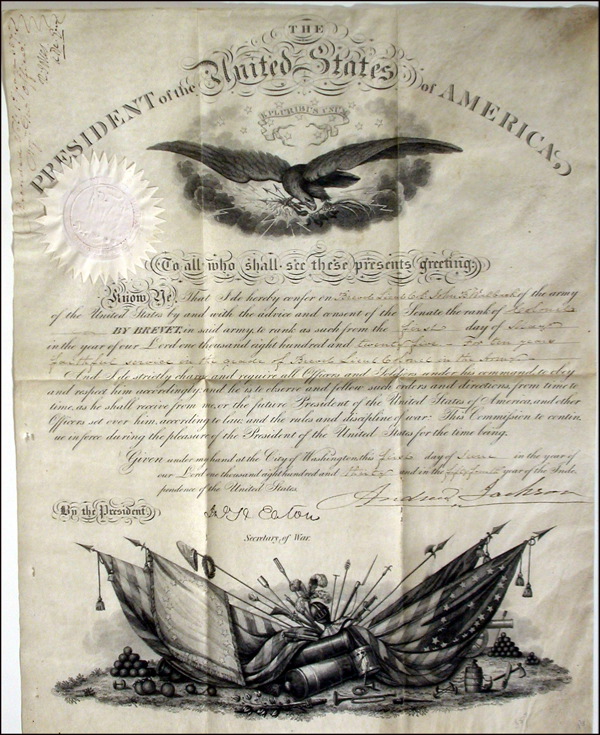 THE
PRESIDENT of the United States of AMERICA,
E PLURIBUS UNUM
To all who shall see these presents greeting:
Know Ye, That I do hereby confer on Brevet Lieut Col. John B. Walbach of the army
of the United States by and with the advice and consent of the Senate the rank of Colonel
BY BREVET, in said army, to rank as such from the first day of May
in the year of our Lord one thousand eight hundred and twenty five – For ten years
faithful service in the grade of Brevet Lieut Colonel in the Army
And I do strictly charge and require all Officers and Soldiers under his command to obey
and respect him accordingly, and he is to observe and follow such orders and directions, from time to
time, as he shall receive from me, or the future President of the United States of America, and other
Officers set over him, according to law, and the rules and discipline of war: This Commission to contin
ue in force during the pleasure of the President of the United States for the time being.
Given under my hand at the City of Washington, this first day of June in the year of
our Lord one thousand eight hundred and thirty and in the fifty fourth year of the Inde
pendence of the United States.
By the President, Andrew Jackson
Eaton
Secretary of War.